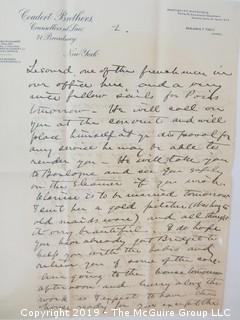 Coudert Brothers,
Counsellors at Law
71 Broadway
New York
2.
Lesourd one of the frenchmen in
our office here, and a very
nice fellow sails for Paris
tomorrow - He will call on
you at the convent and will
place himself at yr disposal for
any service he may be able to
render you - He will take you
to Boulogne and see you safely
on the steamer if you wish.
is to be married tomorrow
I sent her a gold
old maids ware) and all thought
it very beautiful. I do hope
you have already got Bridget to
help you with the babies and
relieve you of some of the care
I am going to the house tomorrow
afternoon and hurry along the
work. I expect to have the
house ready for you
Copyright 2019 - The McGuire Group, LLC